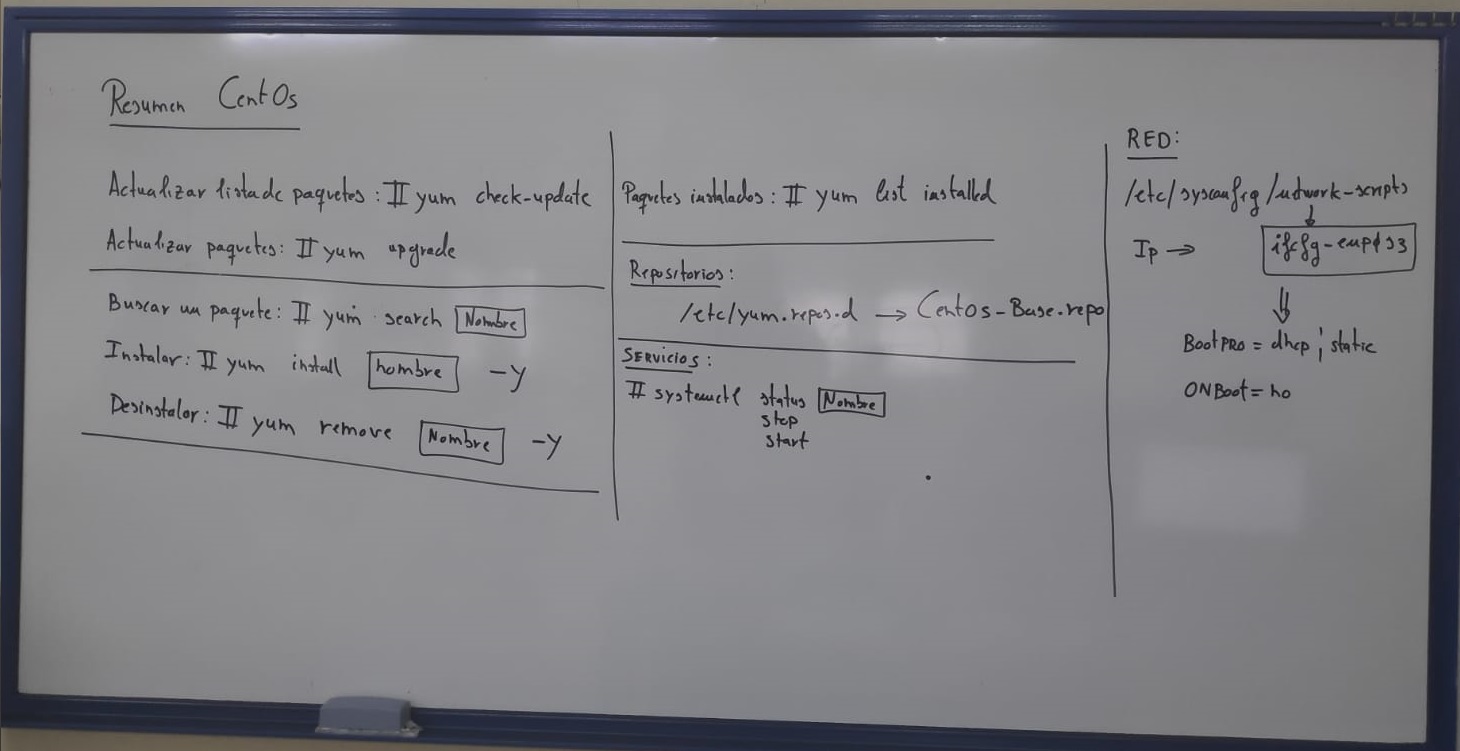 Resumen CentOs
Actualizar lista de paquetes: # yum check-update
Actualizar paquetes: # yum upgrade
Buscar un paquete: # yum search Nombre
Instalar: # yum install nombre -y
Desinstalar: # yum remove Nombre -y
Paquetes instalados: # yum list installed
Repositorios:
/etc/yum.repos.d → CentOs-Base.repo
SERVICIOS:
# systemctl status Nombre
stop
start
RED:
/etc/sysconfig/network-scripts
Ip → ifcfg-enp0s3
BootPRO = dhcp ; static
ONBoot = no